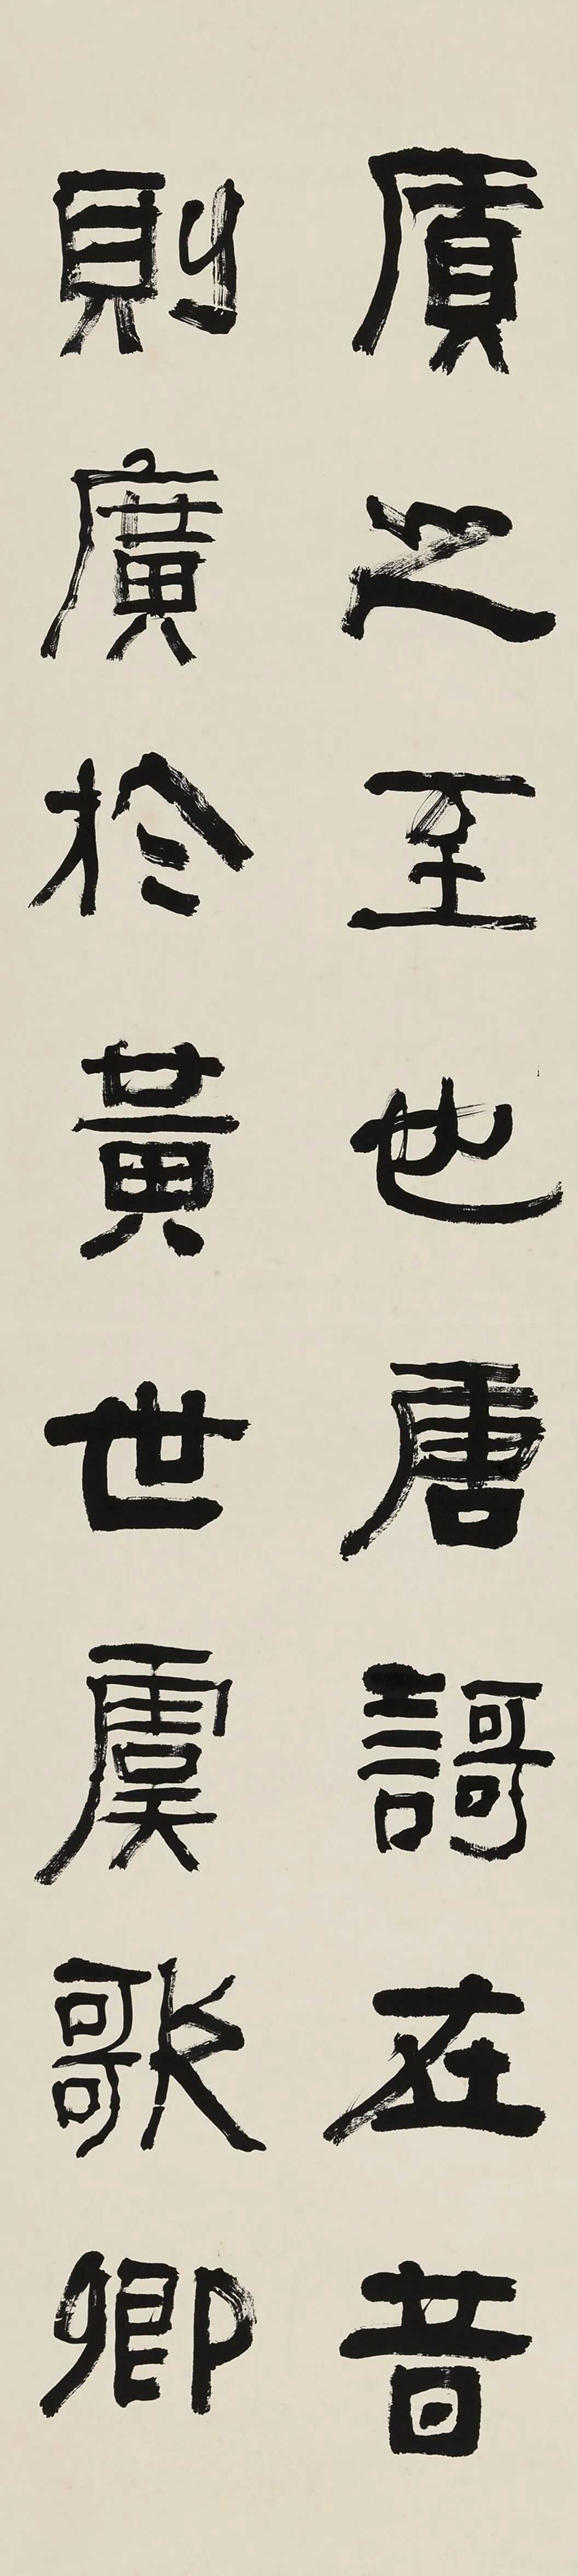 質之至也唐謌在昔
則廣於黃世虞歌卿